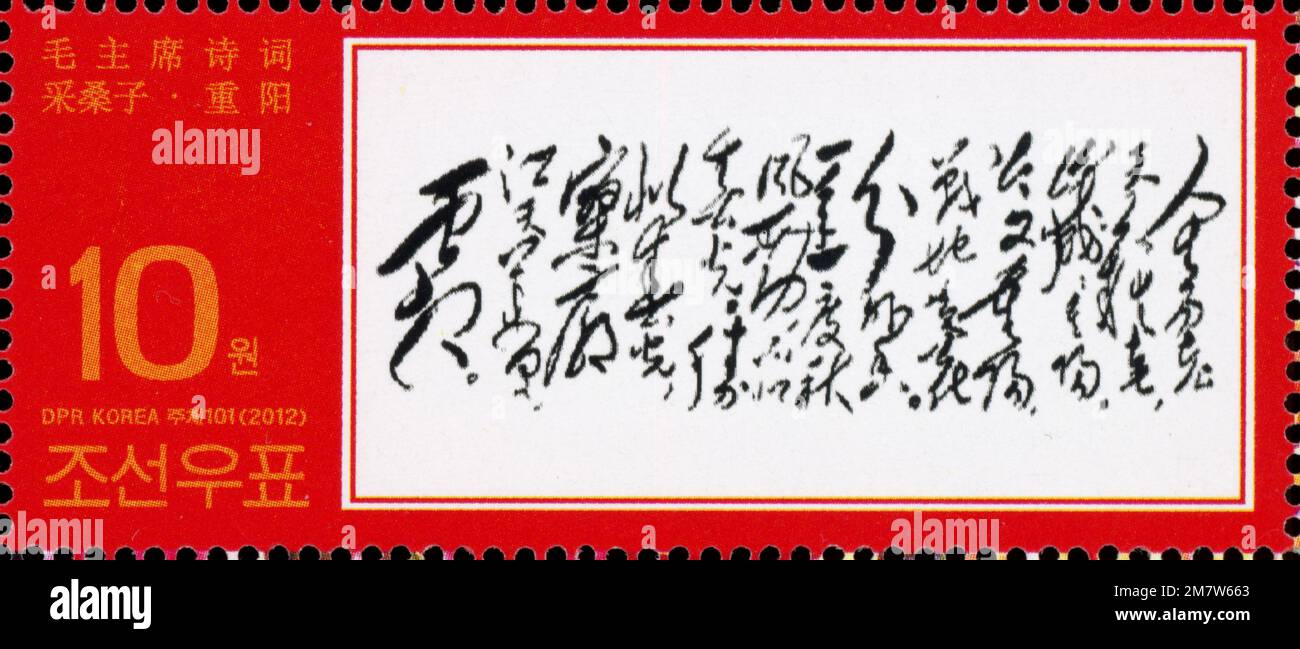 毛主席诗词
采桑子·重阳
10원
DPR KOREA 주체101(2012)
조선우표
人生易老
天難老,
歲歲重陽,
今又重陽,
戰地黄花
分外香。
一年一度秋
風劲,不似
春光。勝
似春光,
寥廓
江天万里
霜。
alamy
Image ID: 2M7W663
www.alamy.com